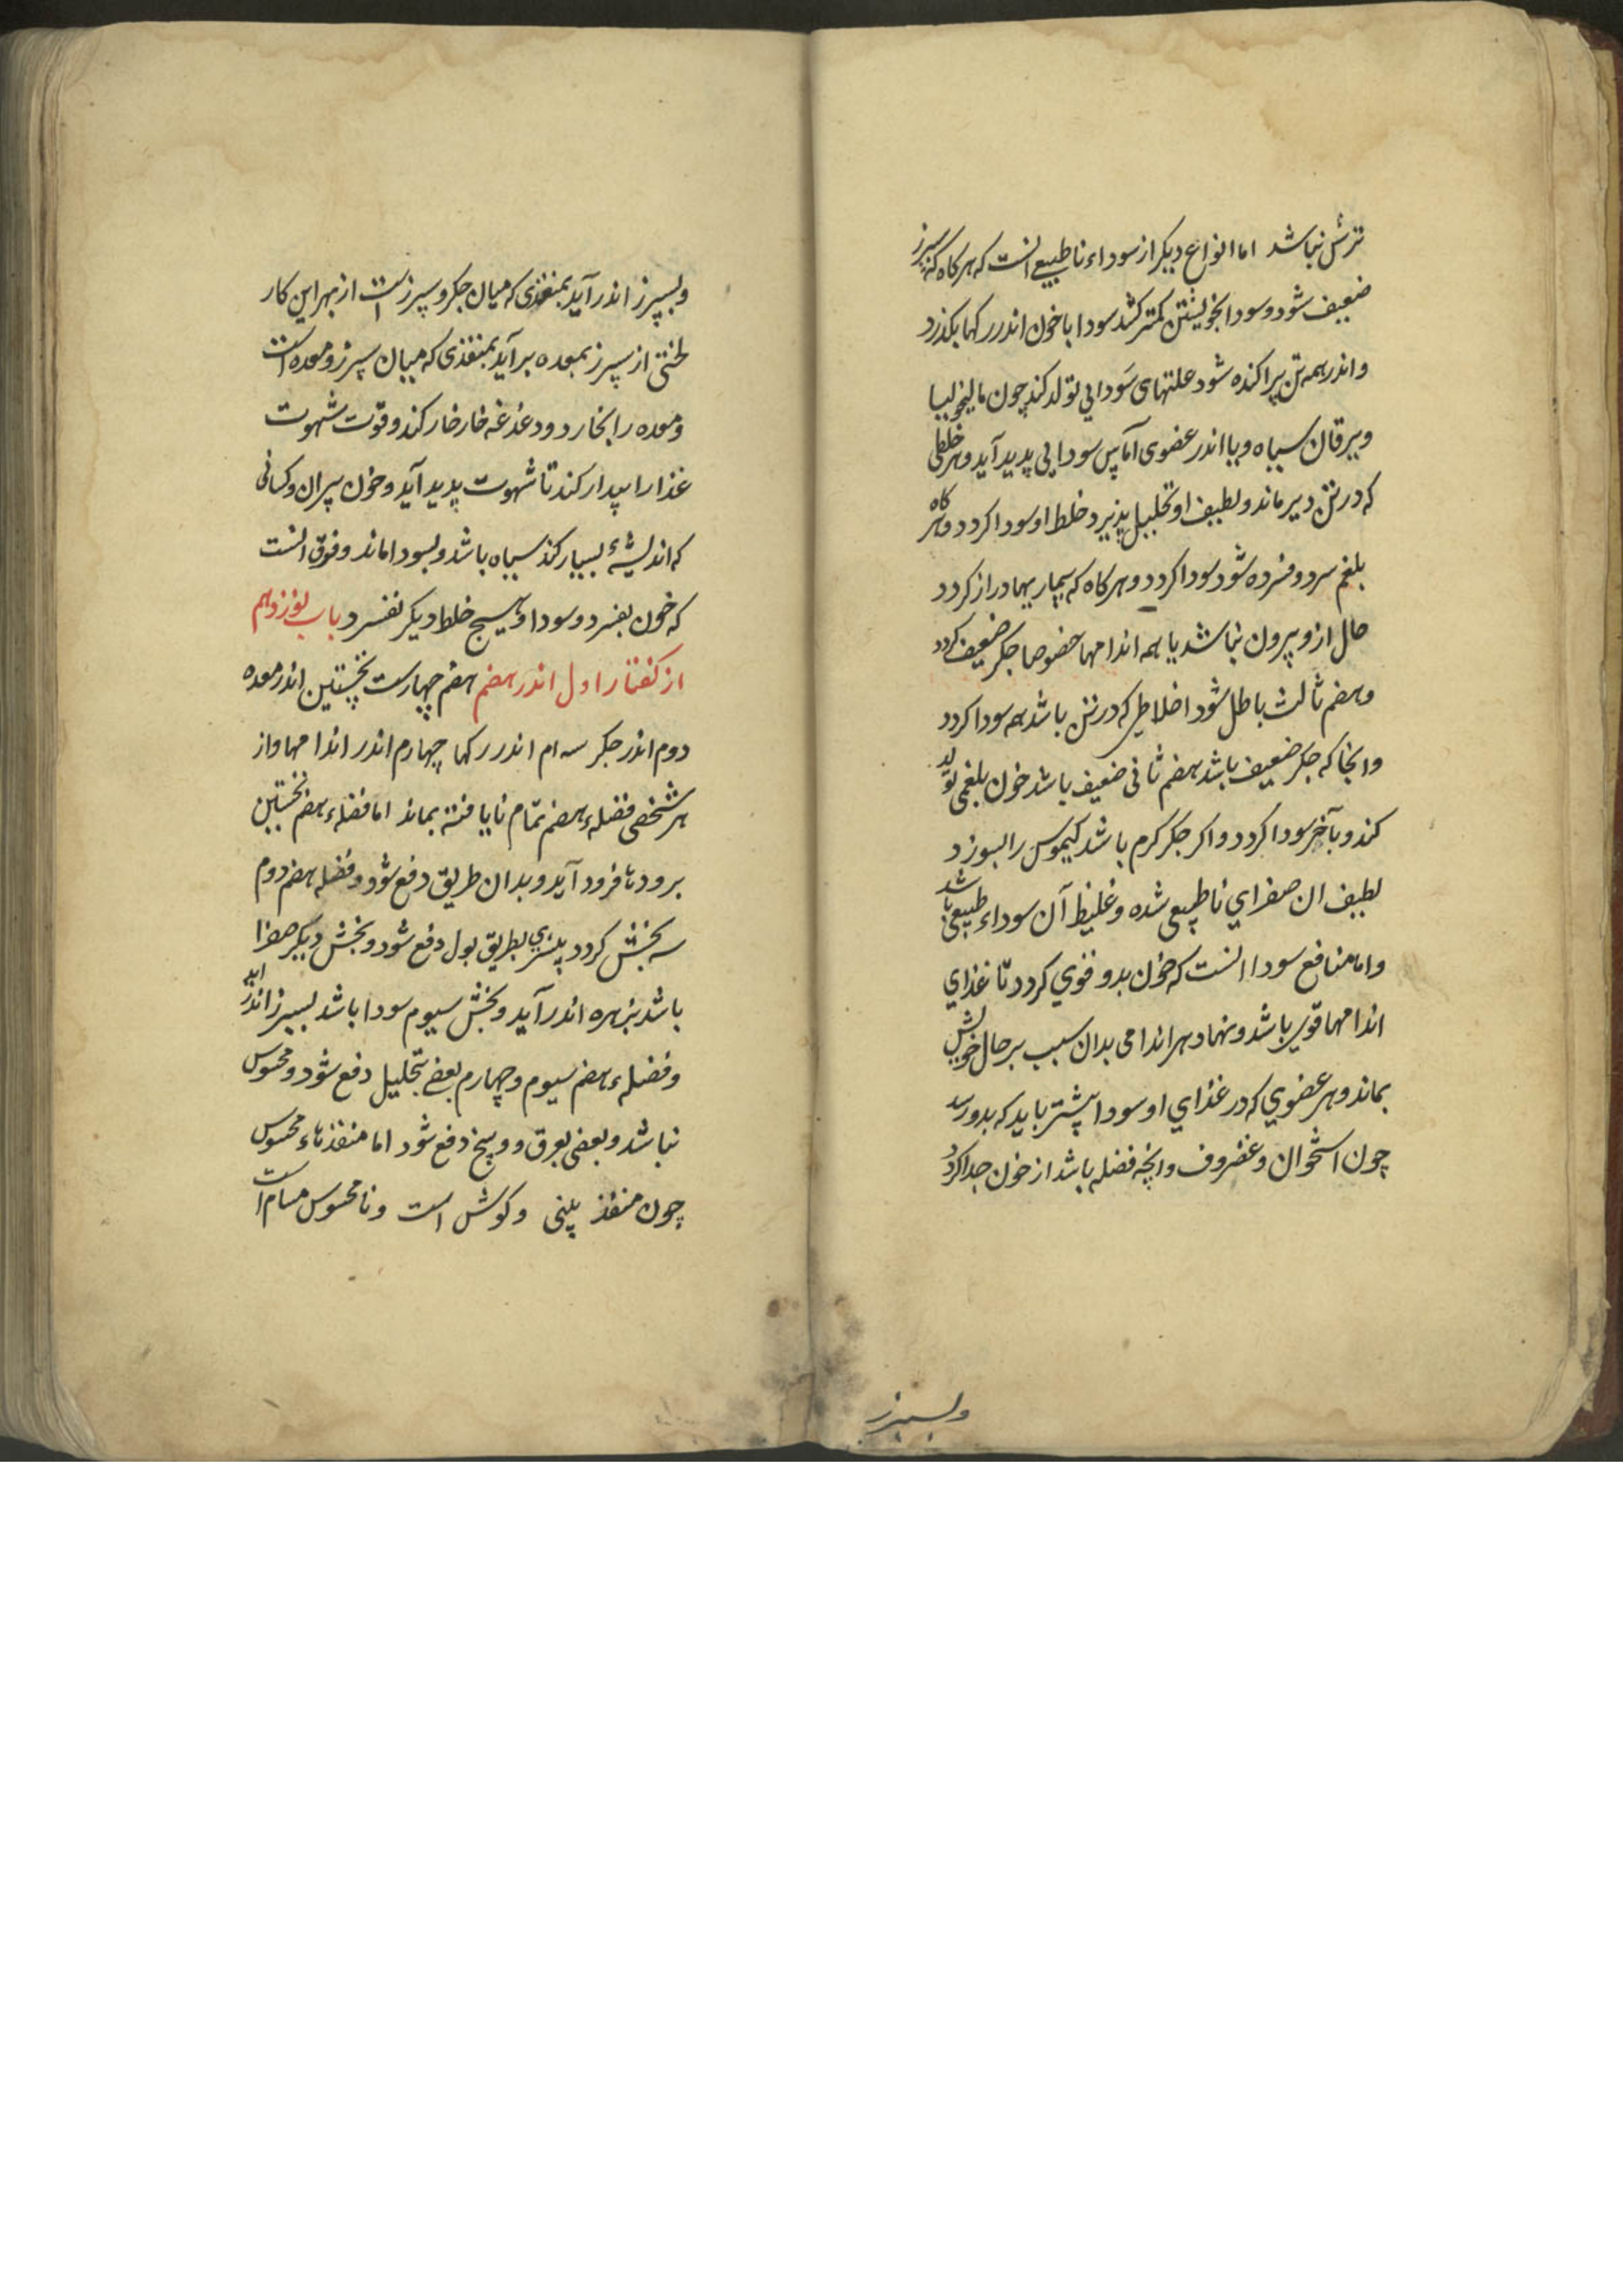 ترش نباشد اما انواع دیکر از سوداء ناطبیعی انست که هرکاه که سپرز
ضعیف شود و سودا بخویشتن کمتر کشد سودا با خون اندر رکها بکذرد
و اندر همه تن پراکنده شود علتهای سودایی تولد کند چون مالیخولیا
و یرقان سیاه و یا اندر عضوی آماس سودایی پدید آید و هر خلطی
که در تن دیر ماند و لطیف او تحلیل پذیرد خلط او سودا کردد و هر کاه
بلغم سرد و فسرده شود سودا کردد و هرکاه که بیماریها دراز کردد
حال ازو بیرون نباشد یا همه اندامها خصوصا جکر ضعیف کردد
و هضم ثالث باطل شود اخلاطی که در تن باشد همه سودا کردد
و انجا که جکر ضعیف باشد هضم ثانی ضعیف باشد خون بلغمی تولد
کند و بآخر سودا کردد و اکر جکر کرم باشد کیموس را بسوزد
لطیف ان صفرای ناطبیعی شده و غلیظ آن سوداء طبیعی باشد
و اما منافع سودا انست که خون بدو قوی کردد تا غذای
اندامها قوی باشد و نهاد هر اندامی بدان سبب بر حال خویش
بماند و هر عضوی که در غذای او سودا بیشتر باید که بدو رسد
چون استخوان و غضروف و انچه فضله باشد از خون جدا کردد
و بسپرز
و بسپرز اندر آید بمنفذی که میان جکر و سپرز است از بهر این کار
لختی از سپرز بمعده برآید بمنفذی که میان سپرز و معده است
و معده را بخارد و دغدغه خارخار کند و قوت شهوت
غذا را بیدار کند تا شهوت پدید آید و خون پیران و کسانی
که اندیشهٔ بسیار کنند سیاه باشد و بسودا ماند و فرق انست
که خون بفسرد و سودا و هیچ خلط دیکر نفسرد باب نوزدهم
از کفتار اول اندر هضم هضم چهارست نخستین اندر معده
دوم اندر جکر سه ام اندر رکها چهارم اندر اندامها و از
هر شخصی فضلهء هضم تمام نایافته بماند اما فضلهء هضم نخستین
برودها فرود آید و بدان طریق دفع شود و فضله هضم دوم
سه بخش کردد بطریق بول دفع شود و بخش دیکر صفرا
باشد بزهره اندر آید و بخش سیوم سودا باشد بسپرز اندر آید
و فضلهء هضم سیوم و چهارم بعضی بتحلیل دفع شود و محسوس
نباشد و بعضی بعرق و وسخ دفع شود اما منفذهاء محسوس
چون منفذ بینی و کوش است و نامحسوس مسام است